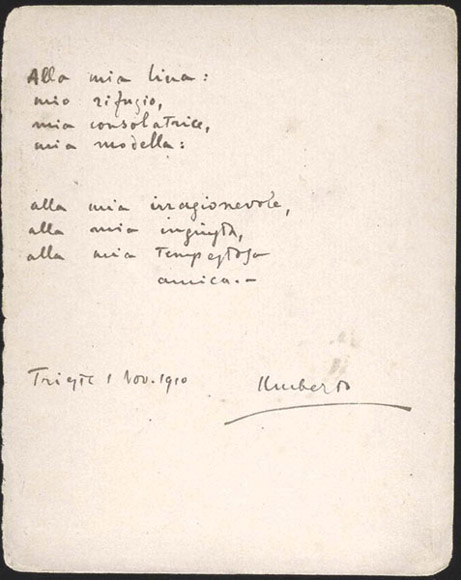 Alla mia Lina:
mio rifugio,
mia consolatrice,
mia modella:
alla mia irragionevole,
alla mia ingiusta,
alla mia tempestosa
amica.–
Trieste 1 Nov. 1910
Umberto